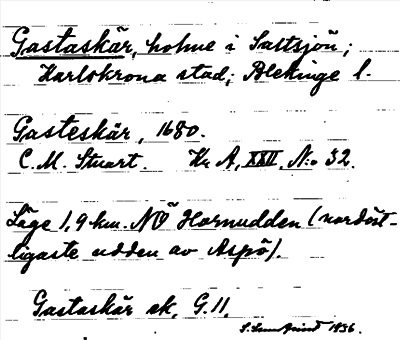 Gastaskär, holme i Saltsjön;
Karlskrona stad; Blekinge l.
Gasteskär, 1680.
C. M. Stuart. Kr A, XXII, N:o 32.
Läge 1,9 km. NV Hornudden (nordöst-
ligaste udden av Aspö).
Gastaskär ek. G.11.
1936.